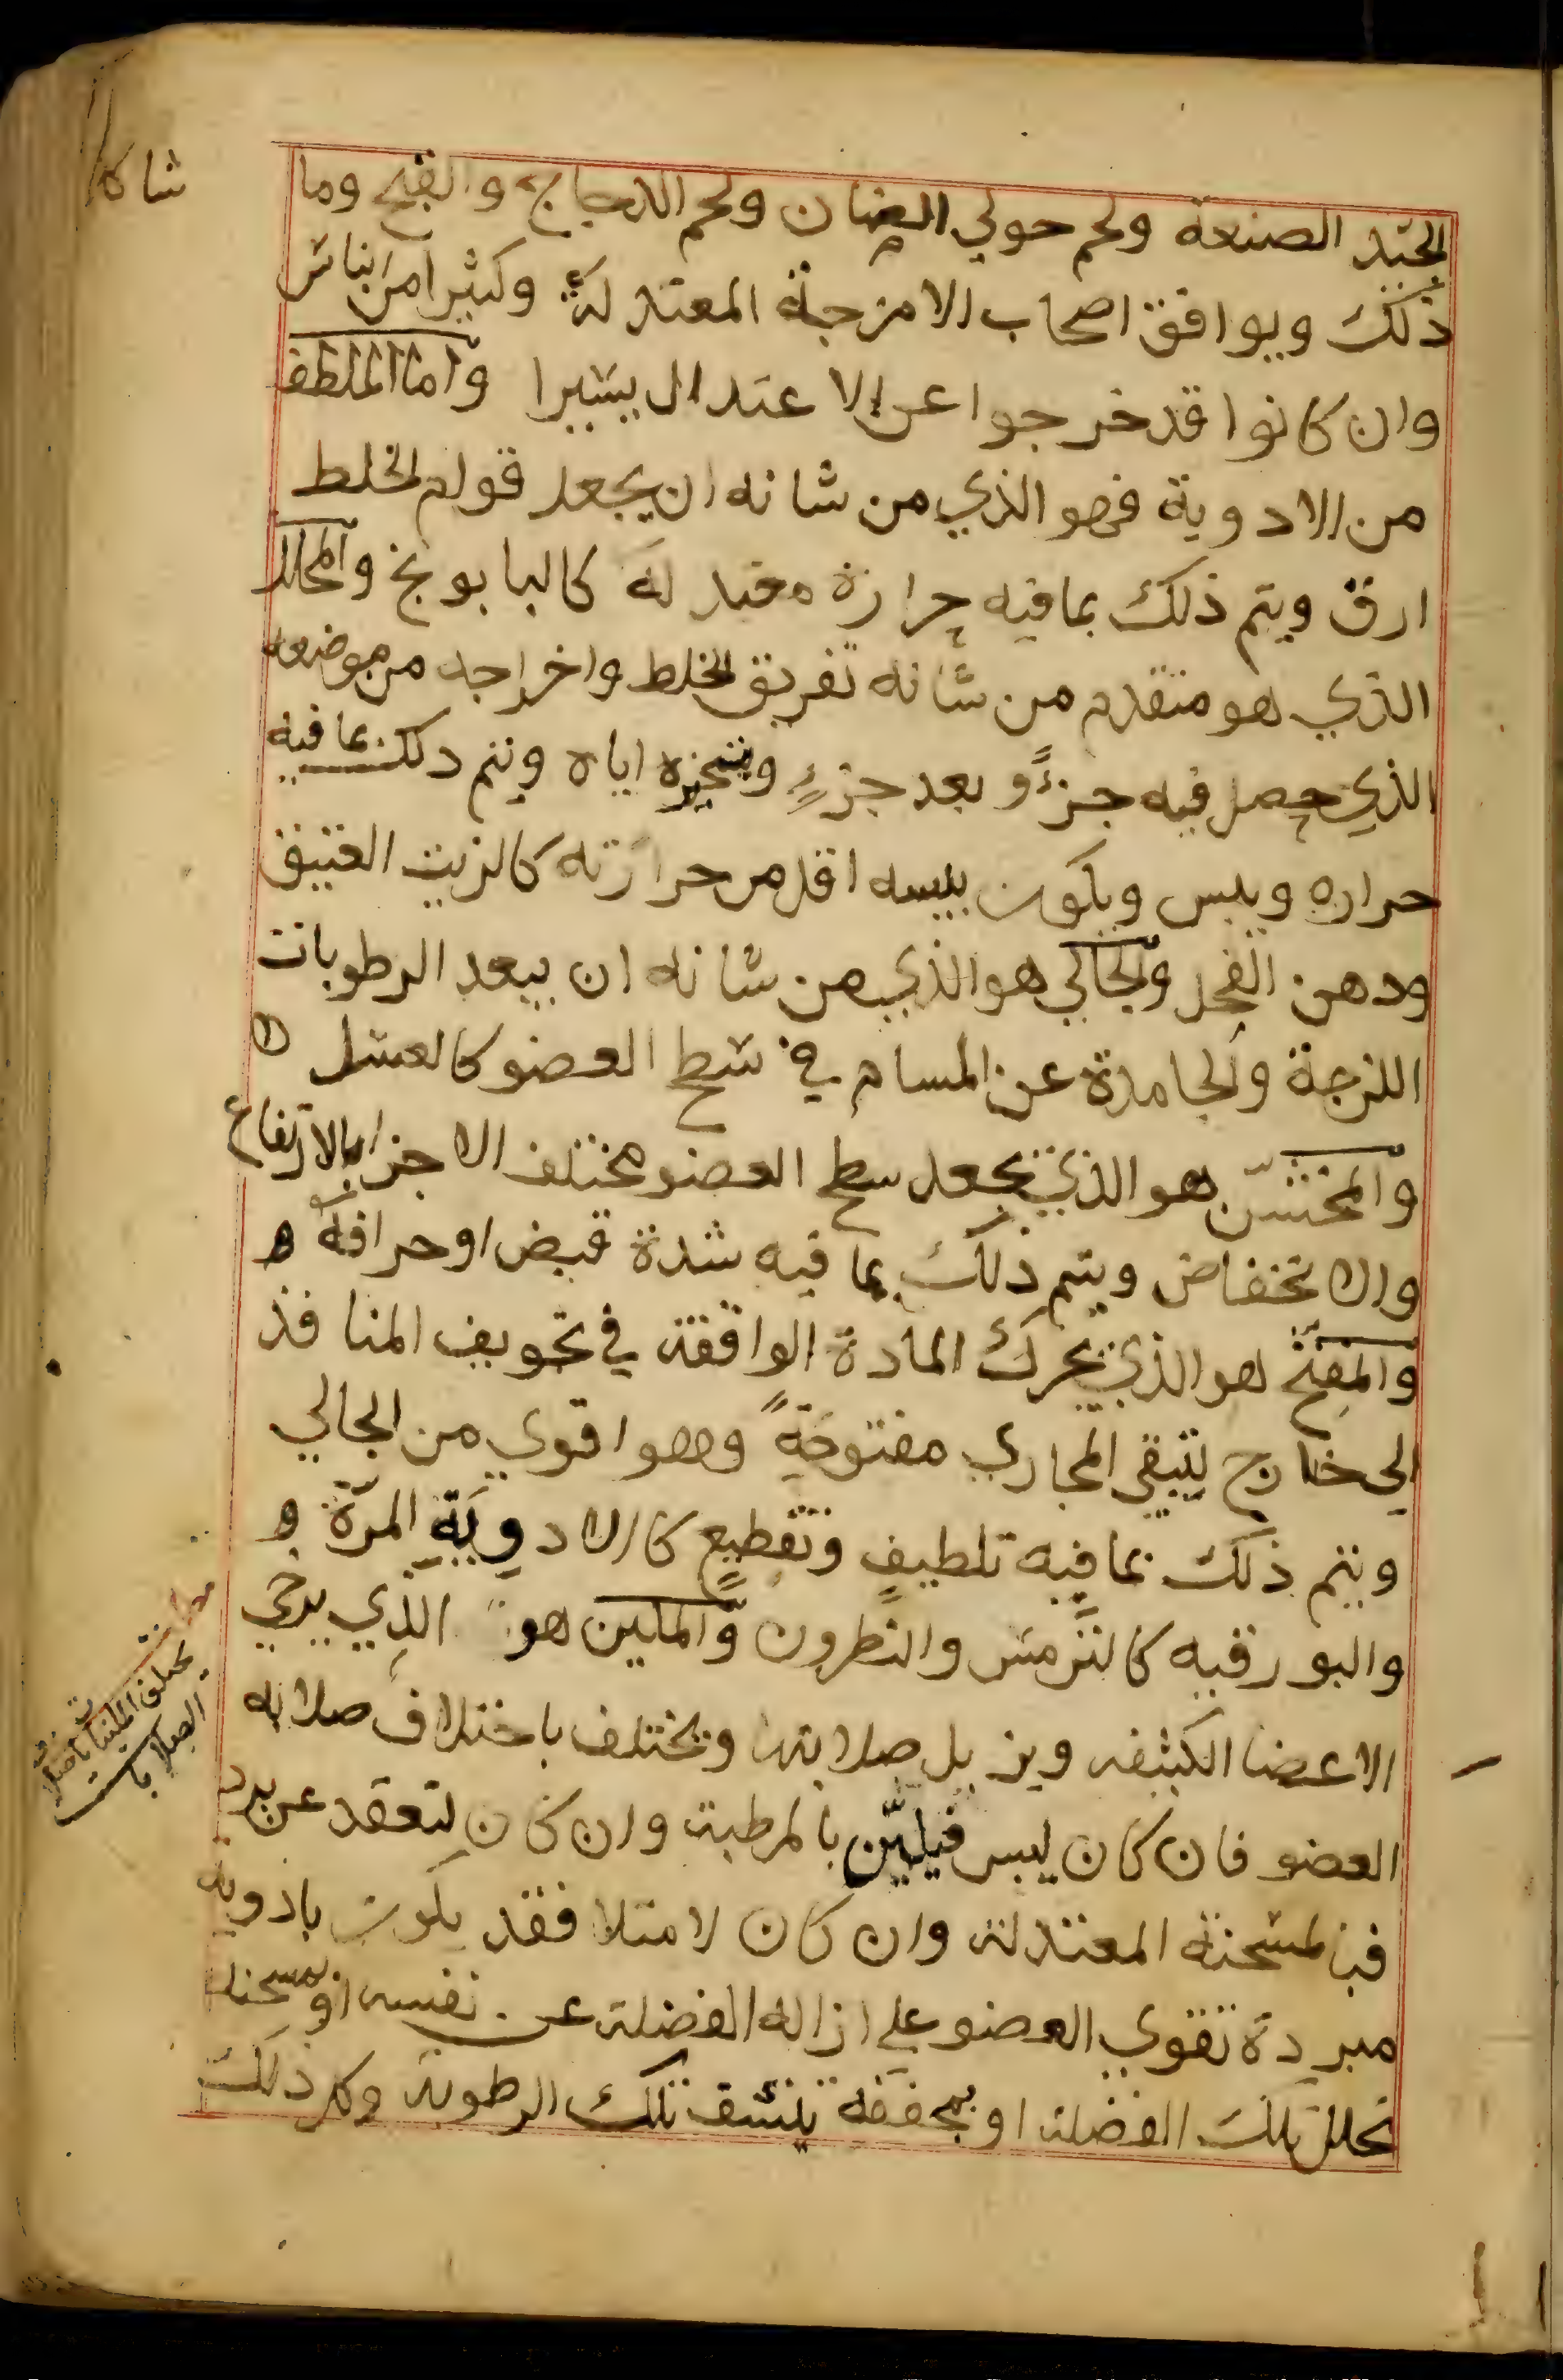 شاكل
الجيد الصنعة ولحم حولي الضان ولحم الدجاج والقبج وما
ذلك ويوافق اصحاب الامزجة المعتدلة وكثيرا من الناس
وان كانوا قد خرجوا عن الاعتدال يسيرا واما الملطف
من الادوية فهو الذي من شانه ان يجعل قوام الخلط
ارق ويتم ذلك بما فيه حرارة معتدلة كالبابونج والمحلل
الذي هو متقدم من شانه تفريق الخلط واخراجه من موضعه
الذي حصل فيه جزءً و بعد جزءٍ وتبخيره اياه ويتم دلك بما فيه
حراره ويبس ويكون يبسه اقل من حرارته كالزيت العتيق
ودهن الفجل والجالي هو الذي من شانه ان يبعد الرطوبات
اللزجة والجامدة عن المسام في سطح العضو كالعسل
والمخشّن هو الذي يجعل سطح العضو مختلف الاجزا بالارتفاع
والانخفاض ويتم ذلك بما فيه شدة قبض او حرافة ه
والمفتح هو الذي يحرك المادة الواقفة في تجويف المنافذ
الى خارج لتبقى المجاري مفتوحةً وهو اقوى من الجالي
ويتم ذلك بما فيه تلطيفٍ وتقطيعٍ كالادويَةِ المرّة و
والبورقيه كالترمس والنطرون والملين هو الذي يرخي
الاعضا الكثيفه ويزيل صلابتها ويختلف باختلاف صلابه
العضو فان كان ليبس فيليّن بالمرطبة وان كان لتعقد عن برد
فبالمسخنة المعتدلة وان كان لامتلا فقد يكون بادويه
مبردة تقوي العضو على ازاله الفضلة عن نفسه او بمسخنة
تحلل تلك الفضلة او بمجففة تنشف تلك الرطوبة وكل ذلك